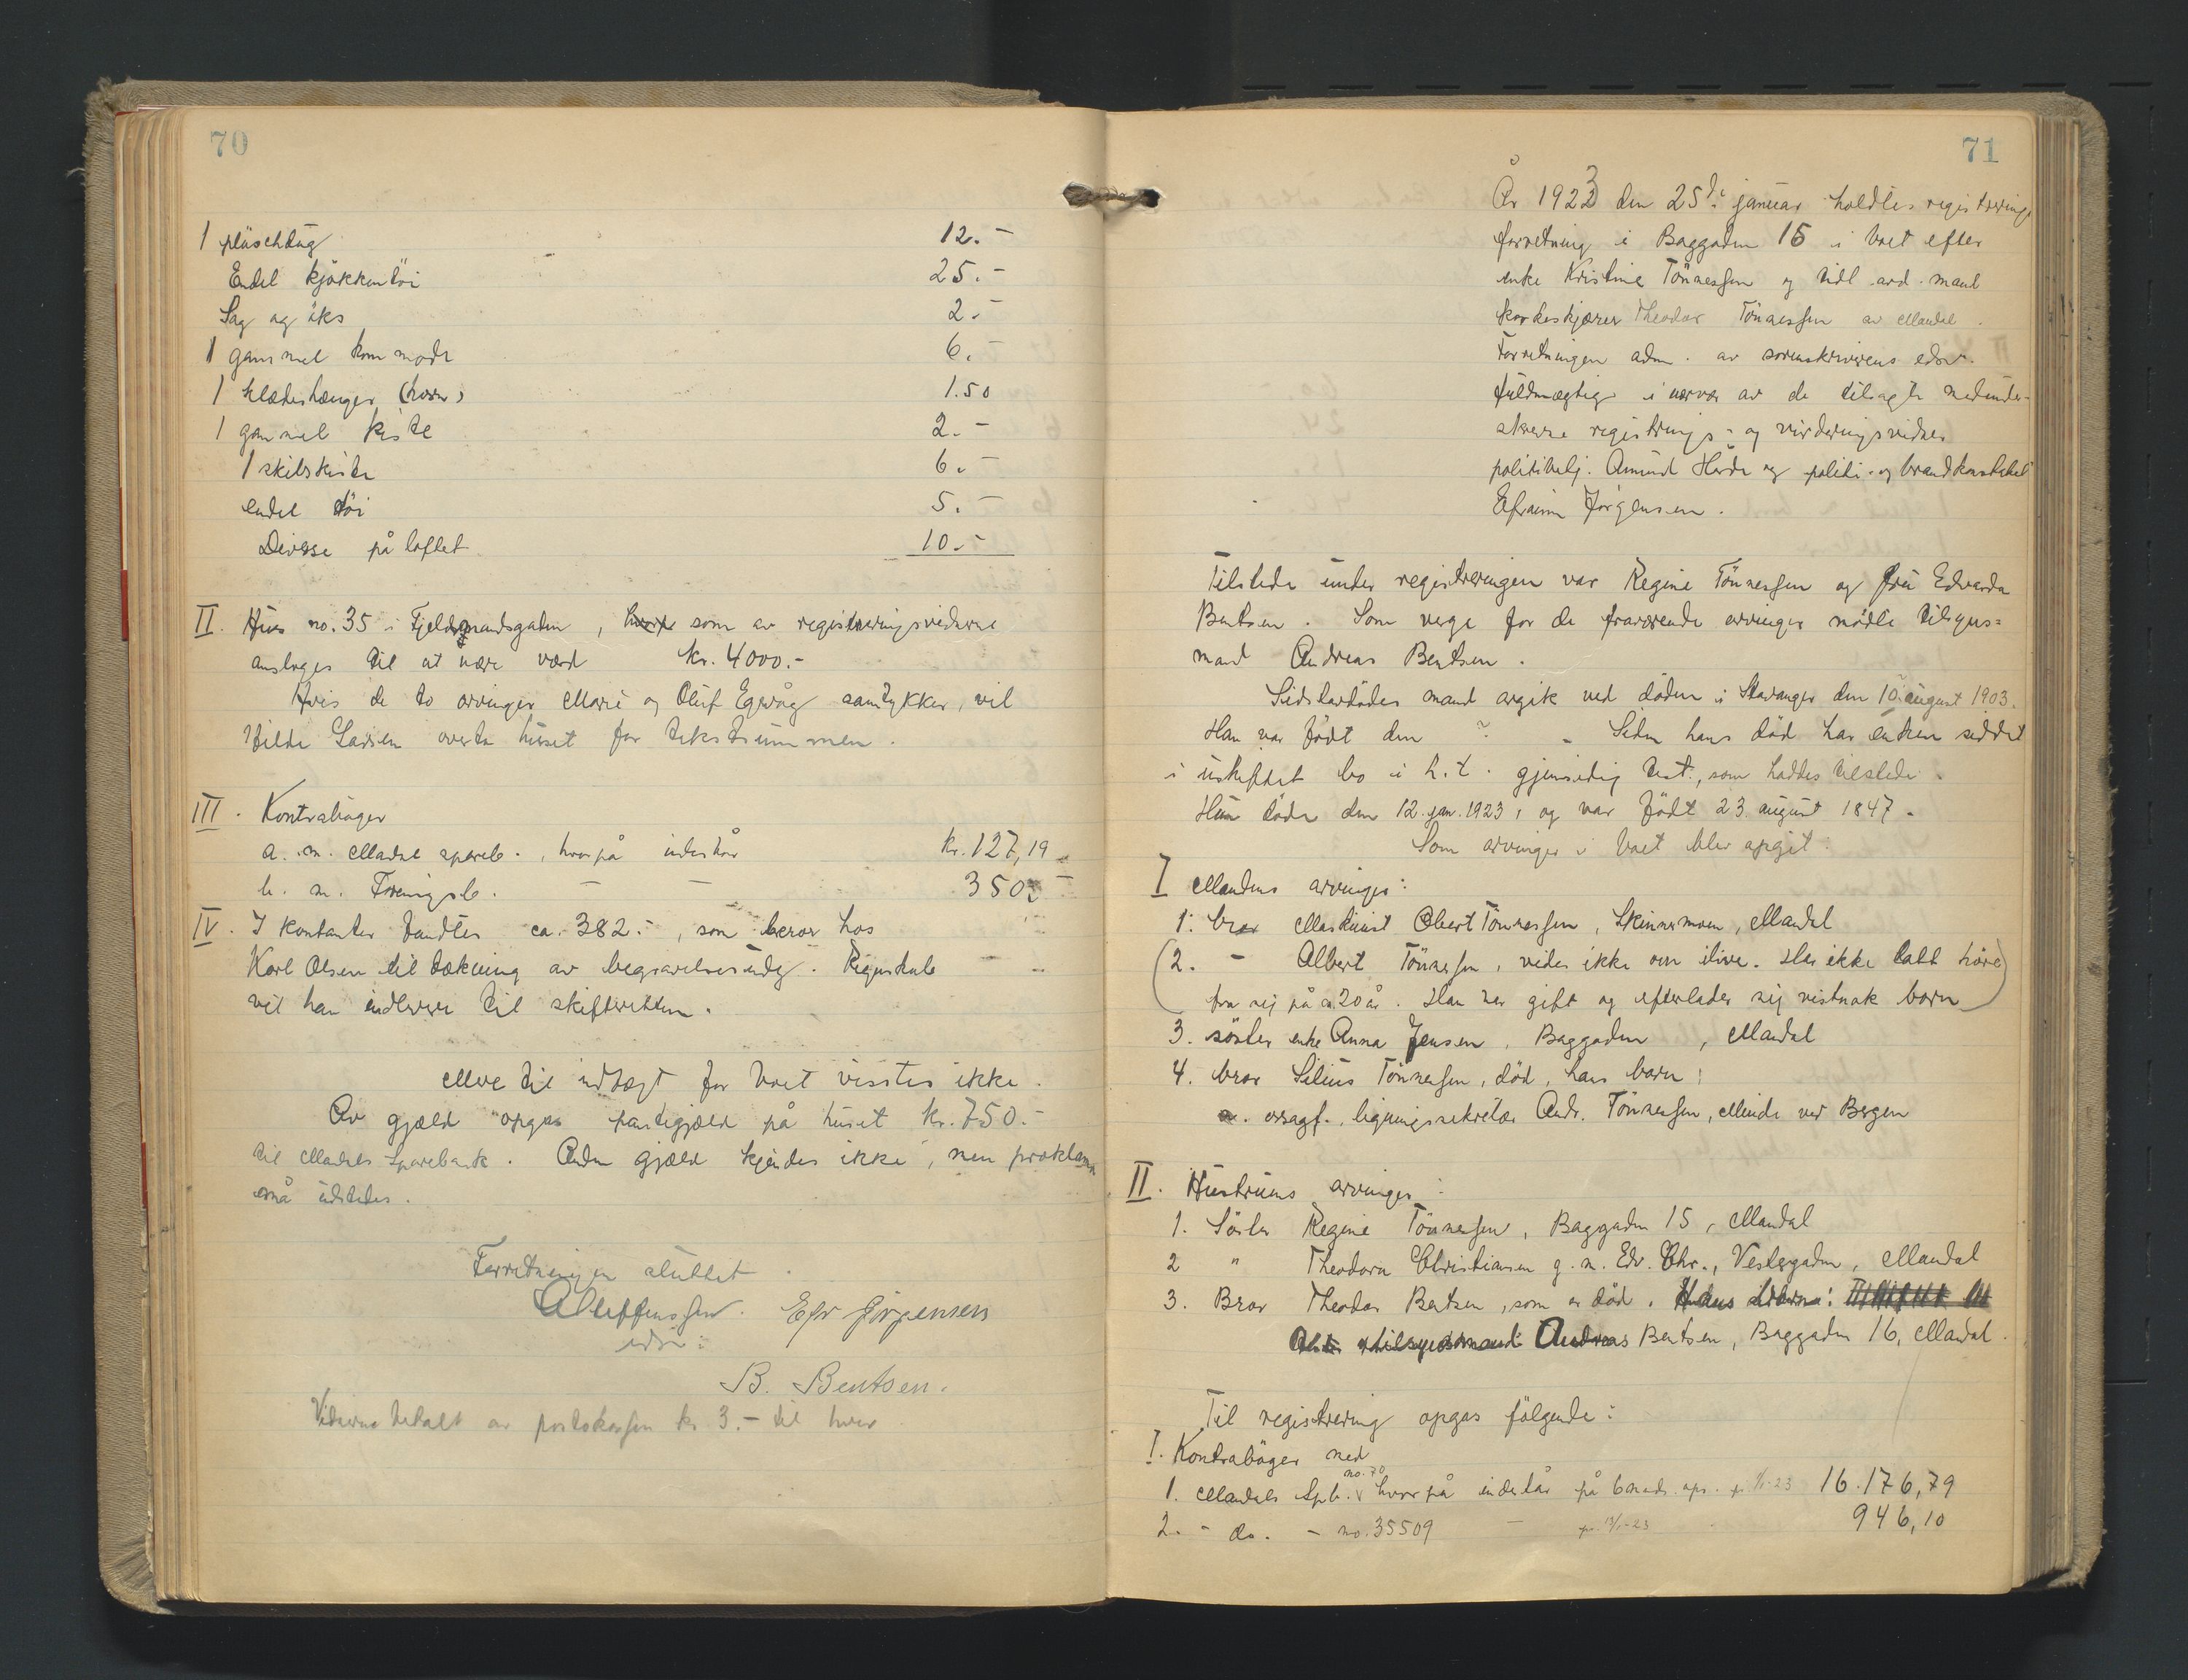 70
1 plüschtæg 12.-
Endel kjøkkentöi 25.-
Sag og öks 2.-
1 gammel kommode 6.-
1 klædeshænger ( ) 1.50
1 gammel kiste 2.-
1 skibskiste 6.-
endel töi 5.-
Diverse på loftet 10.-
II. Hus no. 35 i Fjeldgaardsgaten, som av registreringsvidnerne
ansloges til at være værd kr. 4000.-
Hvis de to arvinger Marie og Oluf samtykker, vil
Hilde Larsen overta huset for takstsummen.
III. Kontraböger
a. m. Mandal spareb., hvorpå indestår kr. 127,19
b. m. Foreningsb. - - 350.-
IV. I kontanter fandtes ca. 382.-, som beror hos
Karl Olsen til dækning av begravelsesudg. Regnskab
vil han indlevere til skifteretten.
Mere til indtægt for boet visstes ikke.
Av gjæld opgas pantegjæld på huset kr. 750.-
til Mandals Sparebank. Anden gjæld kjendes ikke, men proklama
må utstedes.
Forretningen sluttet.
Efr Jörgensen
edsv:
B. Bentsen.
Vidnerne betalt av portokassen kr 3.- til hver
71
År 1923 den 25de januar holdtes registrerings
forretning i Baggaden 15 i boet efter
enke Kristine Tönnessen og tidl. avd. mand
korkeskjærer Theodor Tönnessen av Mandal.
Forretningen adm. av sorenskriverens edsv.
fuldmægtig i nærvær av de tilsagte medunder-
skrevne registrerings- og vurderingsvidner
politibetj. Amund Herde og politi- og brandkonstabel
Efraim Jörgensen.
Tilstede under registreringen var Regine Tönnessen og fru Edvarda
Bentsen. Som verge for de fraværende arvinger mödte tilsyns=
mand Andreas Bentsen.
Sidstavdödes mand avgik ved döden i Stavanger den 10. august 1903.
Han var födt den ? - Siden hans död har enken siddet
i uskiftet bo i h.t. gjensidig test., som haddes tilstede.
Hun döde den 12. jan. 1923, og var födt 23 august 1847.
Som arvinger i boet blev opgit:
I Mandens arvinger:
1. bror Maskinist Obert Tönnessen, Skinsmoen, Mandal
(2. - Albert Tönnessen, vides ikke om ilive. Har ikke latt höre
fra sig på ca. 20 år. Han var gift og efterlader sig vistnok barn)
3. söster enke Anna Jensen, Baggaden, Mandal
4. bror Silius Tönnessen, död, hans barn:
a. ovsagf., ligningssekretær Andr. Tönnessen, Minde ved Bergen
II. Hustruens arvinger:
1. Söster Regine Tönnessen, Baggaden 15, Mandal
2 " Theodora Christiansen g. m. Edv. Chr., Vestergaden, Mandal
3. Bror Theodor Bentsen, som er död. Hans
tilsynsmand Andreas Bentsen, Baggaden 16, Mandal.
Til registrering opgas fölgende:
I. Kontraböger med
1. Mandals Spb. no. 70 hvorpå indestår på 6 mdr. ops. pr. 1/1-23 16.176,79
2. - do. - no. 35509 - pr. 13/1-23 946,10